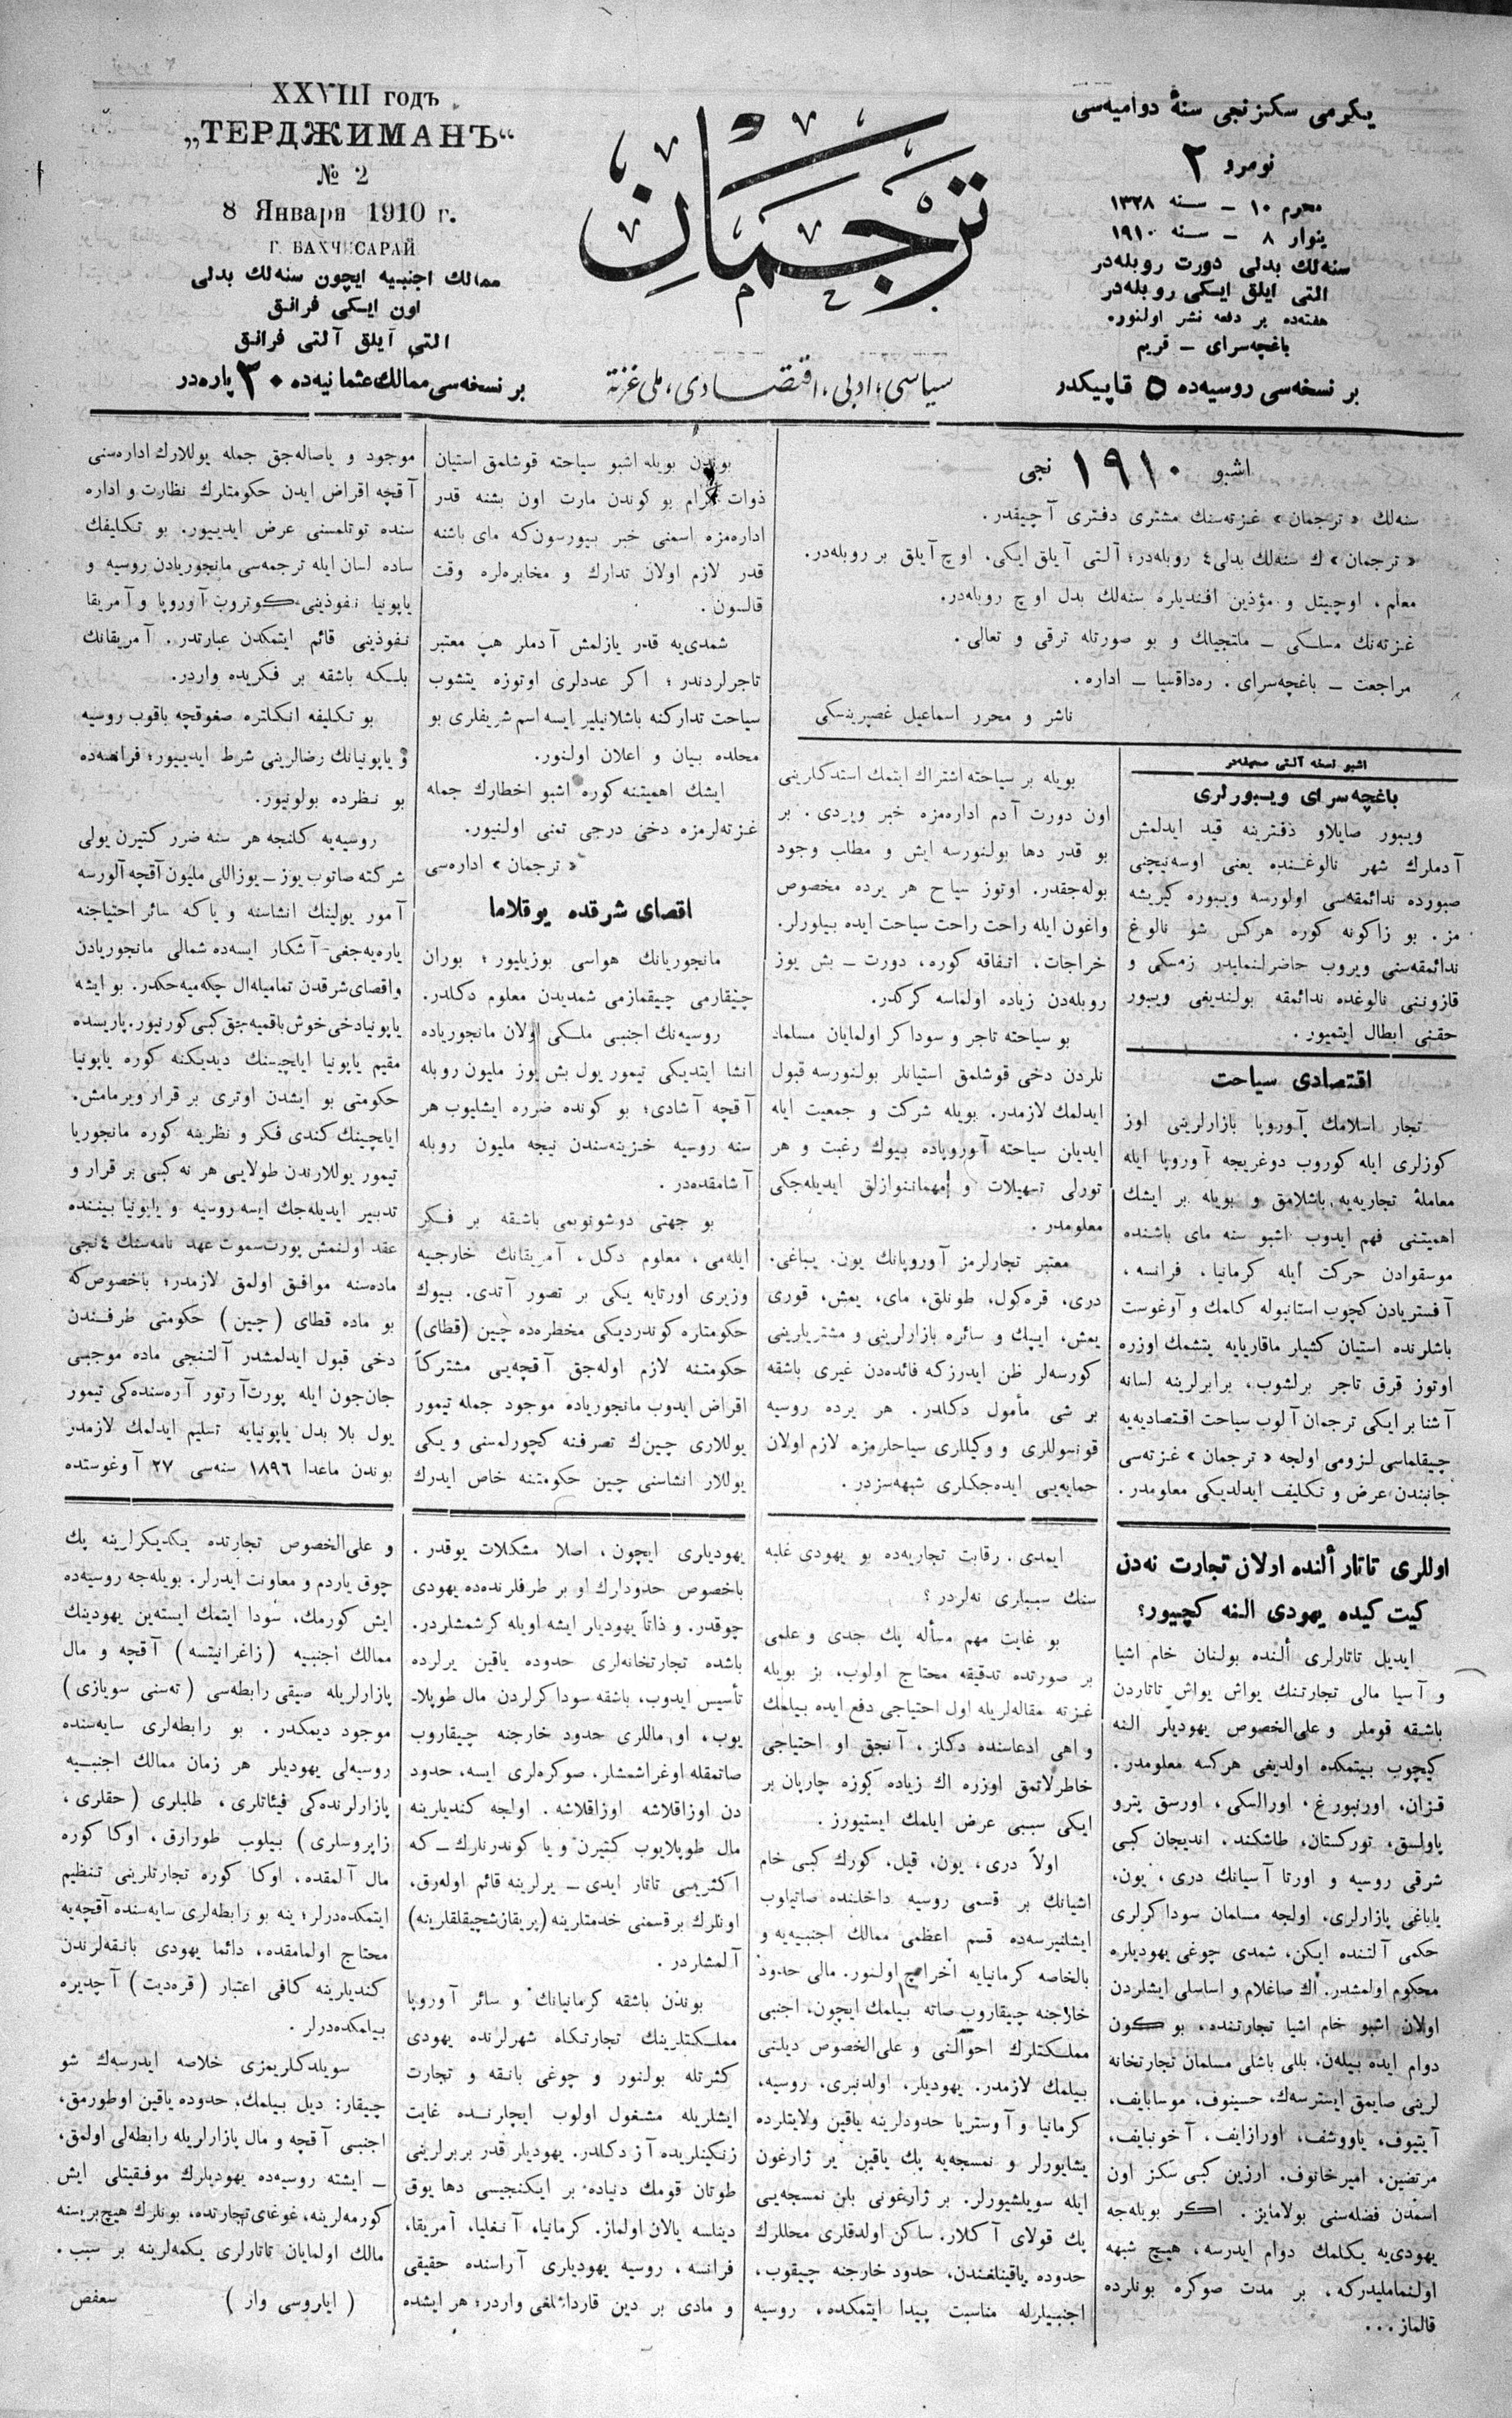 XXVIII годъ
„ТЕРДЖИМАНЪ“
№ 2
8 Января 1910 г.
Г. БАХЧИСАРАЙ
ممالك اجنبيه ایچون سنه‌لك بدلی
اون ایكی فرانق
التی آیلق آلتی فرانق
بر نسخه‌سی ممالك عثمانیه‌ده ٣٠ پاره‌در
ترجمان
سیاسی، ادبی، اقتصادی، ملی غزته
یكرمی سكزنجی سنهٔ دوامیه‌سی
نومرو ٢
محرم ١٠ ـ سنه ١٣٢٨
ینوار ٨ ـ سنه ١٩١٠
سنه‌لك بدلی دورت روبله‌در
التی ایلق ایكی روبله‌در
هفته‌ده بر دفعه نشر اولنور.
باغچه‌سرای ـ قریم
بر نسخه‌سی روسیه‌ده ٥ قاپیكدر
اشبو ١٩١٠ نجی
سنه‌لك «ترجمان» غزته‌سنك مشتری دفتری آچیقدر.
«ترجمان» ك سنه‌لك بدلی ٤ روبله‌در؛ آلتی آیلق ایكی. اوچ آیلق بر روبله‌در.
معلم، اوچیتل و مؤذین افندیلره سنه‌لك بدل اوچ روبله‌در.
غزته‌نك مسلكی ـ ملتجیلك و بو صورتله ترقی و تعالی.
مراجعت ـ باغچه‌سرای. ره‌داقسیا ـ اداره.
ناشر و محرر اسماعیل غصپرینسكی
اشبو نسخه آلتی صحیفه‌در
باغچه‌سرای ویبورلری
ویبور صایلاو دفترینه قید ایدلمش
آدملرك شهر نالوغنده یعنی اوسه‌نیچنی
صبورده ندائمقه‌سی اولورسه ویبوره كیریشه
مز. بو زاكونه كوره هركس شو نالوغ
ندائمقه‌سنی ویروب حاضرلنمایدر زمسكی و
قازونینی نالوغده ندائمقه بولندیغی ویبور
حقنی ابطال ایتمیور.
اقتصادی سیاحت
تجار اسلامك آوروپا بازارلرینی اوز
كوزلری ایله كوروب دوغریجه آوروپا ایله
معاملهٔ تجاریه‌یه باشلامق و بویله بر ایشك
اهمیتنی فهم ایدوب اشبو سنه مای باشنده
موسقوادن حركت ایله كرمانیا، فرانسه،
آفستریادن كچوب استانبوله كلمك و آوغوست
باشلرنده استیان كشیلر ماقاریایه یتشمك اوزره
اوتوز قرق تاجر برلشوب، برابرلرینه لسانه
آشنا بر ایكی ترجمان آلوب سیاحت اقتصادیه‌یه
چیقلماسی لزومی اولجه «ترجمان» غزته‌سی
جانبندن عرض و تكلیف ایدلدیكی معلومدر.
بویله بر سیاحته اشتراك ایتمك استدكارینی
اون دورت آدم اداره‌مزه خبر ویردی. بر
بو قدر دها بولنورسه ایش و مطلب وجود
بوله‌جقدر. اوتوز سیاح هر یرده مخصوص
واغون ایله راحت راحت سیاحت ایده بیلورلر.
خراجات، اتفاقه كوره، دورت ـ بش یوز
روبله‌دن زیاده اولماسه كركدر.
بو سیاحته تاجر و سوداكر اولمایان مسلما
نلردن دخی قوشلمق استیانلر بولنورسه قبول
ایدلمك لازمدر. بویله شركت و جمعیت ایله
ایدیان سیاحته آوروپاده بیوك رغبت و هر
تورلی تسهیلات و مهماننوازلق ایدیله‌جكی
معلومدر.
معتبر تجارلرمز آوروپانك یون. یباغی.
دری، قره‌كول، طونلق، مای، یمش، قوری
یمش، ایپك و سائره بازارلرینی و مشتریارینی
كورسه‌لر ظن ایدرزكه فائده‌دن غیری باشقه
بر شی مأمول دكلدر. هر یرده روسیه
قونسوللری و وكیللری سیاحلرمزه لازم اولان
حمایه‌یی ایده‌جكلری شبهه‌سزدر.
بوندن بویله اشبو سیاحته قوشلمق استیان
ذوات كرام بو كوندن مارت اون بشنه قدر
اداره‌مزه اسمنی خبر بیورسون‌كه مای باشنه
قدر لازم اولان تدارك و مخابره‌لره وقت
قالسون.
شمدی‌یه قدر یازلمش آدملر هپ معتبر
تاجرلردندر؛ اكر عددلری اوتوزه یتشوب
سیاحت تداركنه باشلانیلیر ایسه اسم شریفلری بو
محلده بیان و اعلان اولنور.
ایشك اهمیتنه كوره اشبو اخطارك جمله
غزته‌لرمزه دخی درجی تمنی اولنیور.
«ترجمان» اداره‌سی
اقصای شرقده یوقلاما
مانجوریانك هواسی بوزیلیور؛ بوران
چیقارمی چیقمازمی شمدیدن معلوم دكلدر.
روسیه‌نك اجنبی ملكی اولان مانجوریاده
انشا ایتدیكی تیمور یول بش یوز ملیون روبله
آقچه آشادی؛ بو كونده ضرره ایشلیوب هر
سنه روسیه خزینه‌سندن نیچه ملیون روبله
آشامقده‌در.
بو جهتی دوشونوبمی باشقه بر فكر
ایله‌می، معلوم دكل، آمریقانك خارجیه
وزیری اورتایه یكی بر تصور آتدی. بیوك
حكومتاره كوندردیكی مخطره‌ده چین (قطای)
حكومتنه لازم اوله‌جق آقچه‌یی مشتركاً
اقراض ایدوب مانجوریاده موجود جمله تیمور
یوللاری چین‌ك تصرفنه كچورلمسنی و یكی
یوللار انشاسنی چین حكومتنه خاص ایدرك
موجود و یاصاله‌جق جمله یوللارك اداره‌سنی
آقچه اقراض ایدن حكومتلرك نظارت و اداره
سنده توتلمسنی عرض ایدیپور. بو تكلیفك
ساده لسان ایله ترجمه‌سی مانجوریادن روسیه و
یاپونیا نفوذینی كوتروب آوروپا و آمریقا
نفوذینی قائم ایتمكدن عبارتدر. آمریقانك
بلكه باشقه بر فكریده واردر.
بو تكلیفه انكلتره صغوقچه باقوب روسیه
و یاپونیانك رضالرینی شرط ایدیپور؛ فرانسه‌ده
بو نظرده بولونیور.
روسیه‌یه كلنجه هر سنه ضرر كتیرن یولی
شركته صاتوب یوز ـ یوزاللی ملیون آقچه آلورسه
آمور یولینك انشاسنه و یا كه سائر احتیاجنه
یاره‌یه‌جغی آشكار ایسه‌ده شمالی مانجوریادن
واقصای شرقدن تمامیله ال چكه‌میه‌جكدر. بو ایشه
یاپونیادخی خوش باقمیه‌جق كبی كورنیور. پاریسده
مقیم یاپونیا ایلچیسنك دیدیكنه كوره یاپونیا
حكومتی بو ایشدن اوتری بر قرار ویرمامش.
ایلچینك كندی فكر و نظرینه كوره مانجوریا
تیمور یوللارندن طولایی هر نه كبی بر قرار و
تدبیر ایدیله‌جك ایسه روسیه و یاپونیا بیننده
عقد اولنمش پورت‌سموت عهد نامه‌سنك ٤ نجی
ماده‌سنه موافق اولمق لازمدر؛ باخصوص‌كه
بو ماده قطای (چین) حكومتی طرفندن
دخی قبول ایدلمشدر آلتنجی ماده موجبی
جان‌جون ایله پورت‌آرتور آره‌سنده‌كی تیمور
یول بلا بدل یاپونیایه تسلیم ایدلمك لازمدر
بوندن ماعدا ١٨٩٦ سنه‌سی ٢٧ آوغوستده
اوللری تاتار ألنده اولان تجارت نه‌دن
كیت كیده یهودی النه كچیور؟
ایدیل تاتارلری ألنده بولنان خام اشیا
و آسیا مالی تجارتنك یواش یواش تاتاردن
باشقه قوملر و علی‌الخصوص یهودیلر النه
كیچوب بیتمكده اولدیغی هركسه معلومدر.
قزان، اورنبورغ، اورالسكی، اورسق پترو
پاولسق، توركستان، طاشكند، اندیجان كبی
شرقی روسیه و اورتا آسیانك دری، یون،
یاباغی پازارلری، اولجه مسلمان سوداكرلری
حكمی آلتنده ایكن، شمدی چوغی یهودیلره
محكوم اولمشدر. اك صاغلام و اساسلی ایشلردن
اولان اشبو خام اشیا تجارتنده، بو كون
دوام ایده بیله‌ن، بللی باشلی مسلمان تجارتخانه
لرینی صایمق ایسترسه‌ك، حسینوف، موسابایف،
آیتیوف، یاووشف، اورازایف، آخونبایف،
مرتضین، امیرخانوف. ارزین كبی سكز اون
اسمدن فضله‌سنی بولامایز. اكر بویله‌جه
یهودی‌یه یكلمك دوام ایدرسه، هیچ شبهه
اولنمامایدركه، بر مدت صوكره بونلرده
قالماز...
ایمدی. رقابت تجاریه‌ده بو یهودی غلبه
سنك سببلری نه‌لردر؟
بو غایت مهم مسأله پك جدی و علمی
بر صورتده تدقیقه محتاج اولوب، بز بویله
غزته مقاله‌لریله اول احتیاجی دفع ایده بیلمك
واهی ادعاسنده دكلز، آنجق او احتیاجی
خاطرلاتمق اوزره اك زیاده كوزه چارپان بر
ایكی سببی عرض ایلمك ایستیورز.
اولاً دری، یون، قیل، كورك كبی خام
اشیانك بر قسمی روسیه داخلنده صاتیلوب
ایشلنیرسه‌ده قسم اعظمی ممالك اجنبیه‌یه و
بالخاصه كرمانیایه اخراج اولنور. مالی حدود
خارجنه چیقاروب صاته بیلمك ایچون، اجنبی
مملكتلرك احوالنی و علی‌الخصوص دیلنی
بیلمك لازمدر. یهودیلر، اولدنبری، روسیه،
كرمانیا و آوستریا حدودلرینه یاقین ولایتلرده
یشایورلر و نمسجه‌یه پك یاقین بر ژارغون
ایله سویلشیورلر. بر ژارغونی بلن نمسجه‌یی
پك قولای آكلار. ساكن اولدقلری محللرك
حدوده یاقینلغندن، حدود خارجنه چیقوب،
اجنبیلرله مناسبت پیدا ایتمكده، روسیه
یهودیلری ایچون، اصلا مشكلات یوقدر.
باخصوص حدودارك او بر طرفلرنده‌ده یهودی
چوقدر. و ذاتاً یهودیلر ایشه اویله كرشمشلردر.
باشده تجارتخانه‌لری حدوده یاقین یرلرده
تأسیس ایدوب، باشقه سوداكرلردن مال طوپلا
یوب، او ماللری حدود خارجنه چیقاروب
صاتمقله اوغراشمشلر. صوكره‌لری ایسه، حدود
دن اوزاقلاشه اوزاقلاشه. اولجه كندیلرینه
مال طوپلایوب كتیرن و یا كوندرنارك ـ كه
اكثریسی تاتار ایدی ـ یرلرینه قائم اوله‌رق،
اونلرك برقسمنی خدمتلرینه (پریقازشچیقلقلرینه)
آلمشلردر.
بوندن باشقه كرمانیانك و سائر آوروپا
مملكتلرینك تجارتكاه شهرلرنده یهودی
كثرتله بولنور و چوغی بانقه و تجارت
ایشلریله مشغول اولوب ایچلرنده غایت
زنكینلریده آز دكلدر. یهودیلر قدر بربرلرینی
طوتان قومك دنیاده بر ایكنجیسی دها یوق
دینلسه یالان اولماز. كرمانیا، آنغلیا، آمریقا،
فرانسه، روسیه یهودیلری آراسنده حقیقی
و مادی بر دین قارداشلغی واردر؛ هر ایشده
و علی‌الخصوص تجارتده یكدیكرلرینه پك
چوق یاردم و معاونت ایدرلر. بویله‌جه روسیه‌ده
ایش كورمك، سودا ایتمك ایسته‌ین یهودینك
ممالك اجنبیه (زاغرانیتسه) آقچه و مال
پازارلریله صیقی رابطه‌سی (ته‌سنی سویازی)
موجود دیمكدر. بو رابطه‌لری سایه‌سنده
روسیه‌لی یهودیلر هر زمان ممالك اجنبیه
پازارلرنده‌كی فیئاتلری، طلبلری (حقلری،
زاپروسلری) بیلوب طورارق، اوكا كوره
مال آلمقده، اوكا كوره تجارتلرینی تنظیم
ایتمكده‌درلر؛ ینه بو رابطه‌لری سایه‌سنده آقچه‌یه
محتاج اولمامقده، دائما یهودی بانقه‌لرندن
كندیلرینه كافی اعتبار (قره‌دیت) آچدیره
بیلمكده‌درلر.
سویلدكلریمزی خلاصه ایدرسه‌ك شو
چیقار: دیل بیلمك، حدوده یاقین اوطورمق،
اجنبی آقچه و مال پازارلریله رابطه‌لی اولمق،
ـ ایشته روسیه‌ده یهودیلرك موفقیتلی ایش
كورمه‌لرینه، غوغای تجارتده، بونلرك هیچ بریسنه
مالك اولمایان تاتارلری یكمه‌لرینه بر سبب.
(ایلروسی وار) سعفص